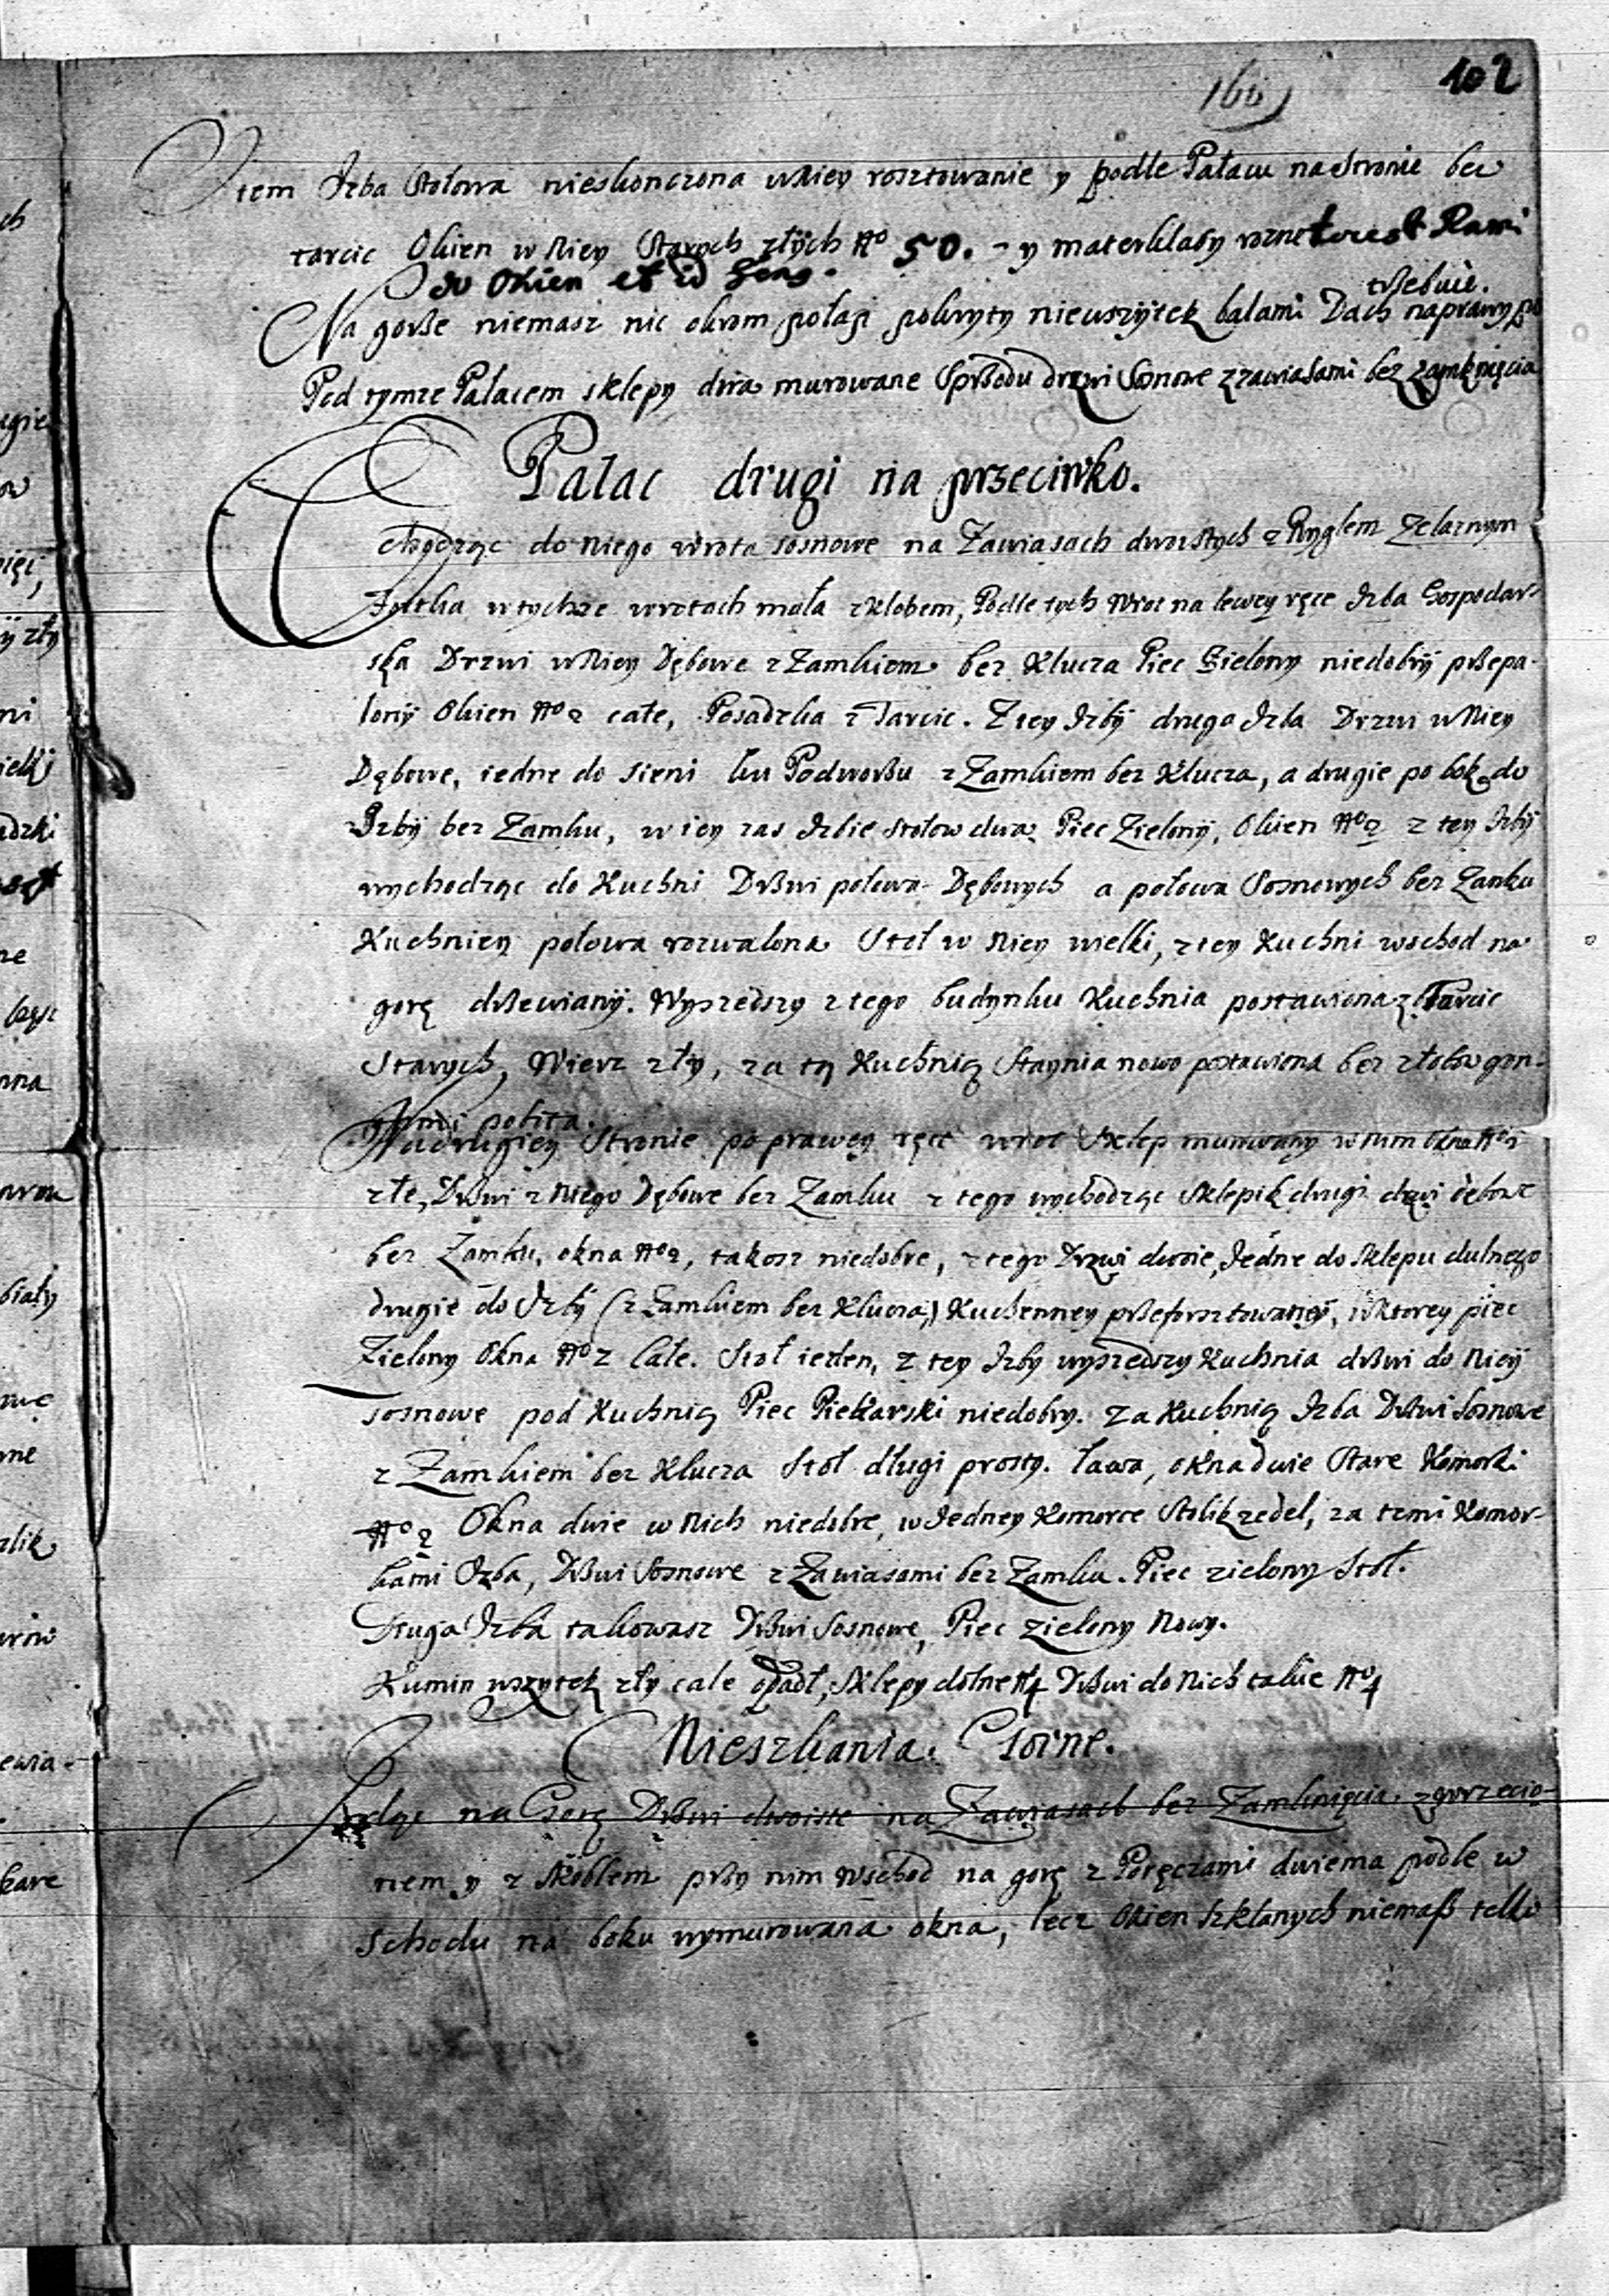 102
Item Izba Stołowa nieskonczona w Niey rosztowanie y podle Pałacu na stronie bez
tarcic Okien w Niey Starych złych No 50. - y materklasy rozne to iest Rami
do Okien et id gens.
trzebuie.
Na gorze niemasz nic okrom połapi pokryty niewszytek balami Dach naprawy po
Pod tymze Pałacem sklepy dwa murowane Sprzodu drzwi Sosnowe z zawiasami bez zamknięcia
Pałac drugi na przeciwko.
Chodząc do Niego wrota sosnowe na Zawiasach dwoistych z Ryglem Zelaznym
Furtka w tychze wrotach mała z klobem, Podle tych Wrot na lewey ręce Izba Gospodar-
ska Drzwi w Niey Dębowe z Zamkiem bez Klucza Piec Zielony niedobrÿ przepa-
lonÿ Okien No 2 całe, Posadzka z Tarcic. Z tey Izbÿ druga Izba Drzwi w Niey
Dębowe, iedne do sieni ku Podworzu z Zamkiem bez Klucza, a drugie po bok do
Izbÿ bez Zamku, w iey zas Izbie stołow dwa Piec Zielonÿ, Okien No 2 z tey Izbÿ
wychodząc do Kuchni Drzwi połowa Dębowych a połowa Sosnowych bez Zamku
Kuchniey połowa rozwalona Stoł w Niey wielki, z tey Kuchni wschod na
gorę drzewianÿ. Wyszedszy z tego budynku Kuchnia postawiona z Tarcic
Starych, Wierz zły, za tą Kuchnią Staynia nowo postawiona bez złobow gon-
tami pobita.
Na drugiey Stronie po prawey ręce wrot Sklep murowany w nim okna No 2
złe, Drzwi z Niego Dębowe bez Zamku z tego wychodząc Sklepik drugi drzwi dębowe
bez Zamku, okna No 2, takosz niedobre, z tego Drzwi dwoie, Jedne do Sklepu dulnego
drugie do Izbÿ (z Zamkiem bez Klucza,) Kuchenney przeforsztowaneÿ, w ktorey piec
Zielony Okna No 2 Całe. Stoł ieden, z tey Izby wyszedszy Kuchnia drzwi do Nieÿ
sosnowe pod Kuchnią Piec Piekarski niedobry. Za Kuchnią Izba Drzwi Sosnowe
z Zamkiem bez Klucza Stoł długi prosty. ława, okna dwie Stare Komorki
No 2 Okna dwie w Nich niedobre, w Jedney Komorce Stolik zedel, za temi Komor-
kami Izba, Drzwi Sosnowe z Zawiasami bez Zamku. Piec zielony Stoł.
Druga Izba takowasz Drzwi Sosnowe, Piec zielony Nowy.
Kumin wszytek zły cale opadł, Sklepy dolne No 4 Drzwi do Nich takie No 4
Mieszkania Gorne.
Idąc na Gorę Drzwi dwoiste na Zawiasach bez Zamknięcia z
nem y z Skoblem przy nim Wschod na gorę z Poręczami dwiema podle w
schodu na boku wymurowana okna, lecz Okien szklanych niemasz telko